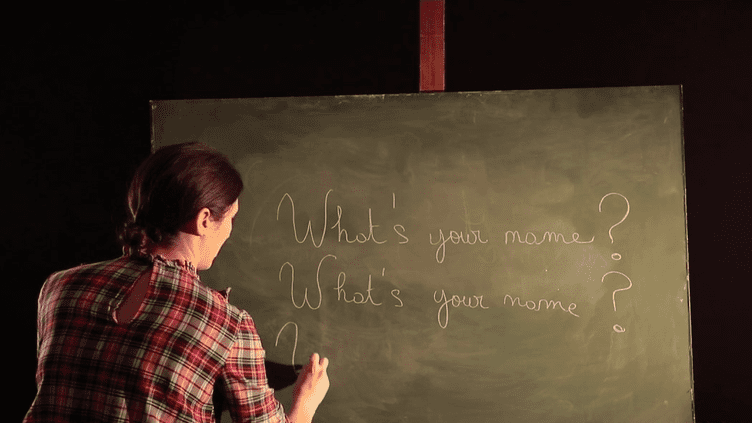 What's your name?
What's your name?